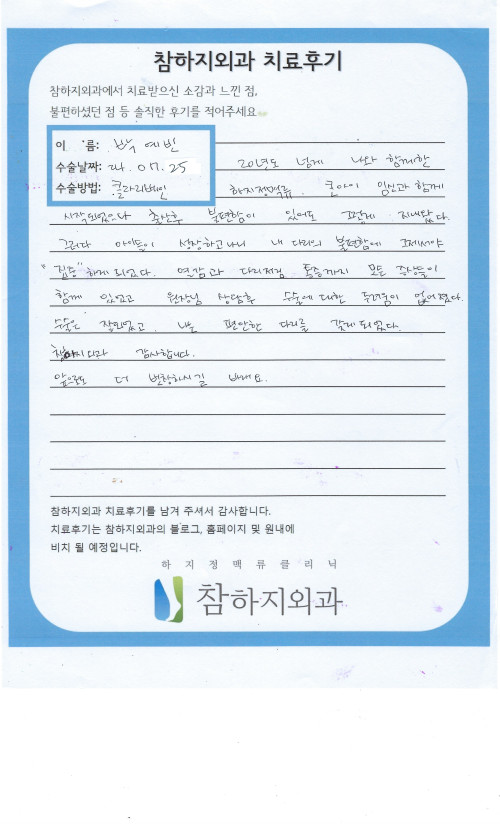 참하지외과 치료후기
참하지외과에서 치료받으신 소감과 느낀 점,
불편하셨던 점 등 솔직한 후기를 적어주세요
이 름: 박예빈
수술날짜: 24. 07. 25
수술방법: 클라리베인
20년도 넘게 나와 함께한
하지정맥류. 큰아이 임신과 함께
시작되었으나 출산후 불편함이 있어도 그렇게 지내왔다.
그러다 아이들이 성장하고나니 내 다리의 불편함에 그제서야
"집중"하게 되었다. 열감과 다리저림 통증까지 모든 증상들이
함께 있었고 원장님 상담후 수술에 대한 두려움이 없어졌다.
수술은 잘되었고, 나는 편안한 다리를 갖게되었다.
참하지외과 감사합니다.
앞으로도 더 번창하시길 바래요.
참하지외과 치료후기를 남겨 주셔서 감사합니다.
치료후기는 참하지외과의 블로그, 홈페이지 및 원내에
비치 될 예정입니다.
하지정맥류클리닉
참하지외과